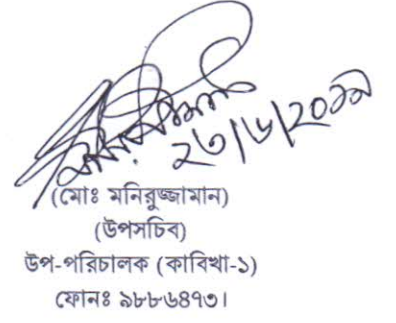 ২৩/৬/২০১৯
(মোঃ মনিরুজ্জামান)
(উপসচিব)
উপ-পরিচালক (কাবিখা-১)
ফোনঃ ৯৮৮৬৪৭৩।